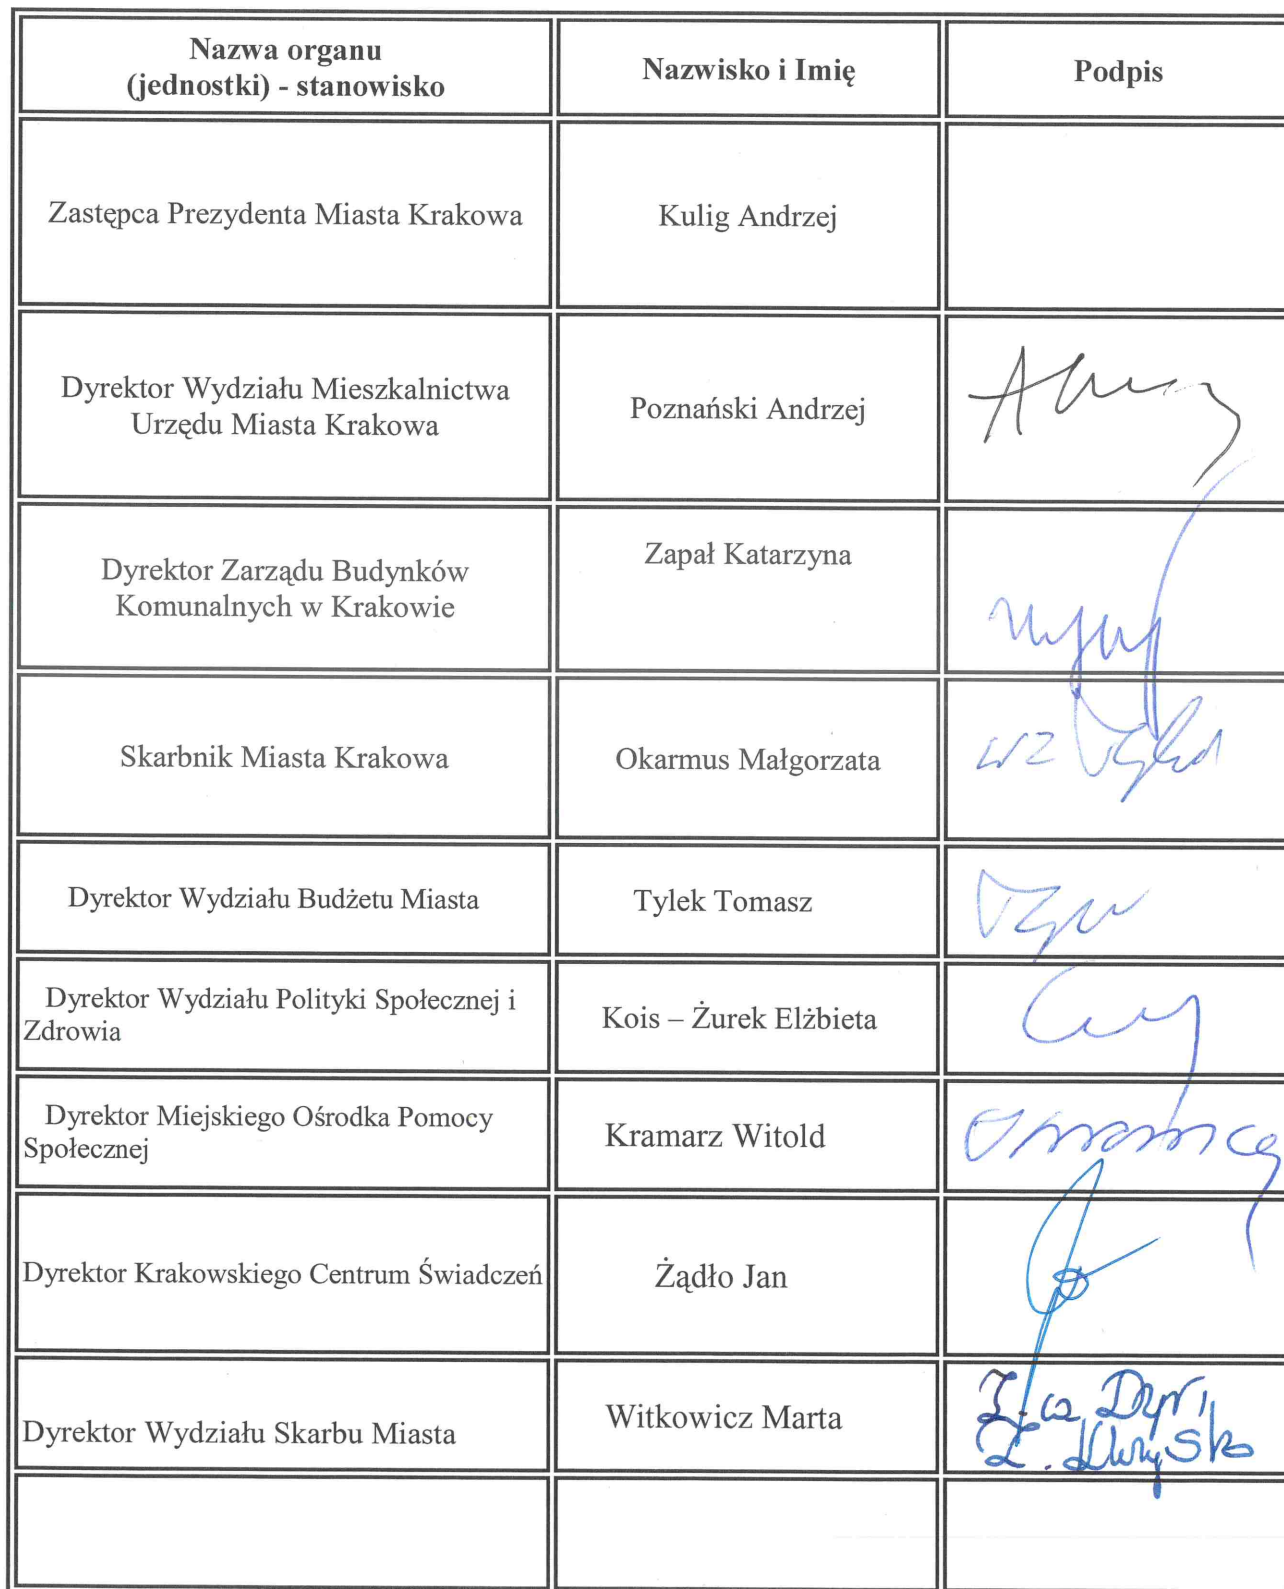 Nazwa organu
(jednostki) - stanowisko
Nazwisko i Imię
Podpis
Zastępca Prezydenta Miasta Krakowa
Kulig Andrzej
Dyrektor Wydziału Mieszkalnictwa
Urzędu Miasta Krakowa
Poznański Andrzej
Dyrektor Zarządu Budynków
Komunalnych w Krakowie
Zapał Katarzyna
Skarbnik Miasta Krakowa
Okarmus Małgorzata
wz
Dyrektor Wydziału Budżetu Miasta
Tylek Tomasz
Dyrektor Wydziału Polityki Społecznej i
Zdrowia
Kois – Żurek Elżbieta
Dyrektor Miejskiego Ośrodka Pomocy
Społecznej
Kramarz Witold
Dyrektor Krakowskiego Centrum Świadczeń
Żądło Jan
Dyrektor Wydziału Skarbu Miasta
Witkowicz Marta
Z-ca Dyr.